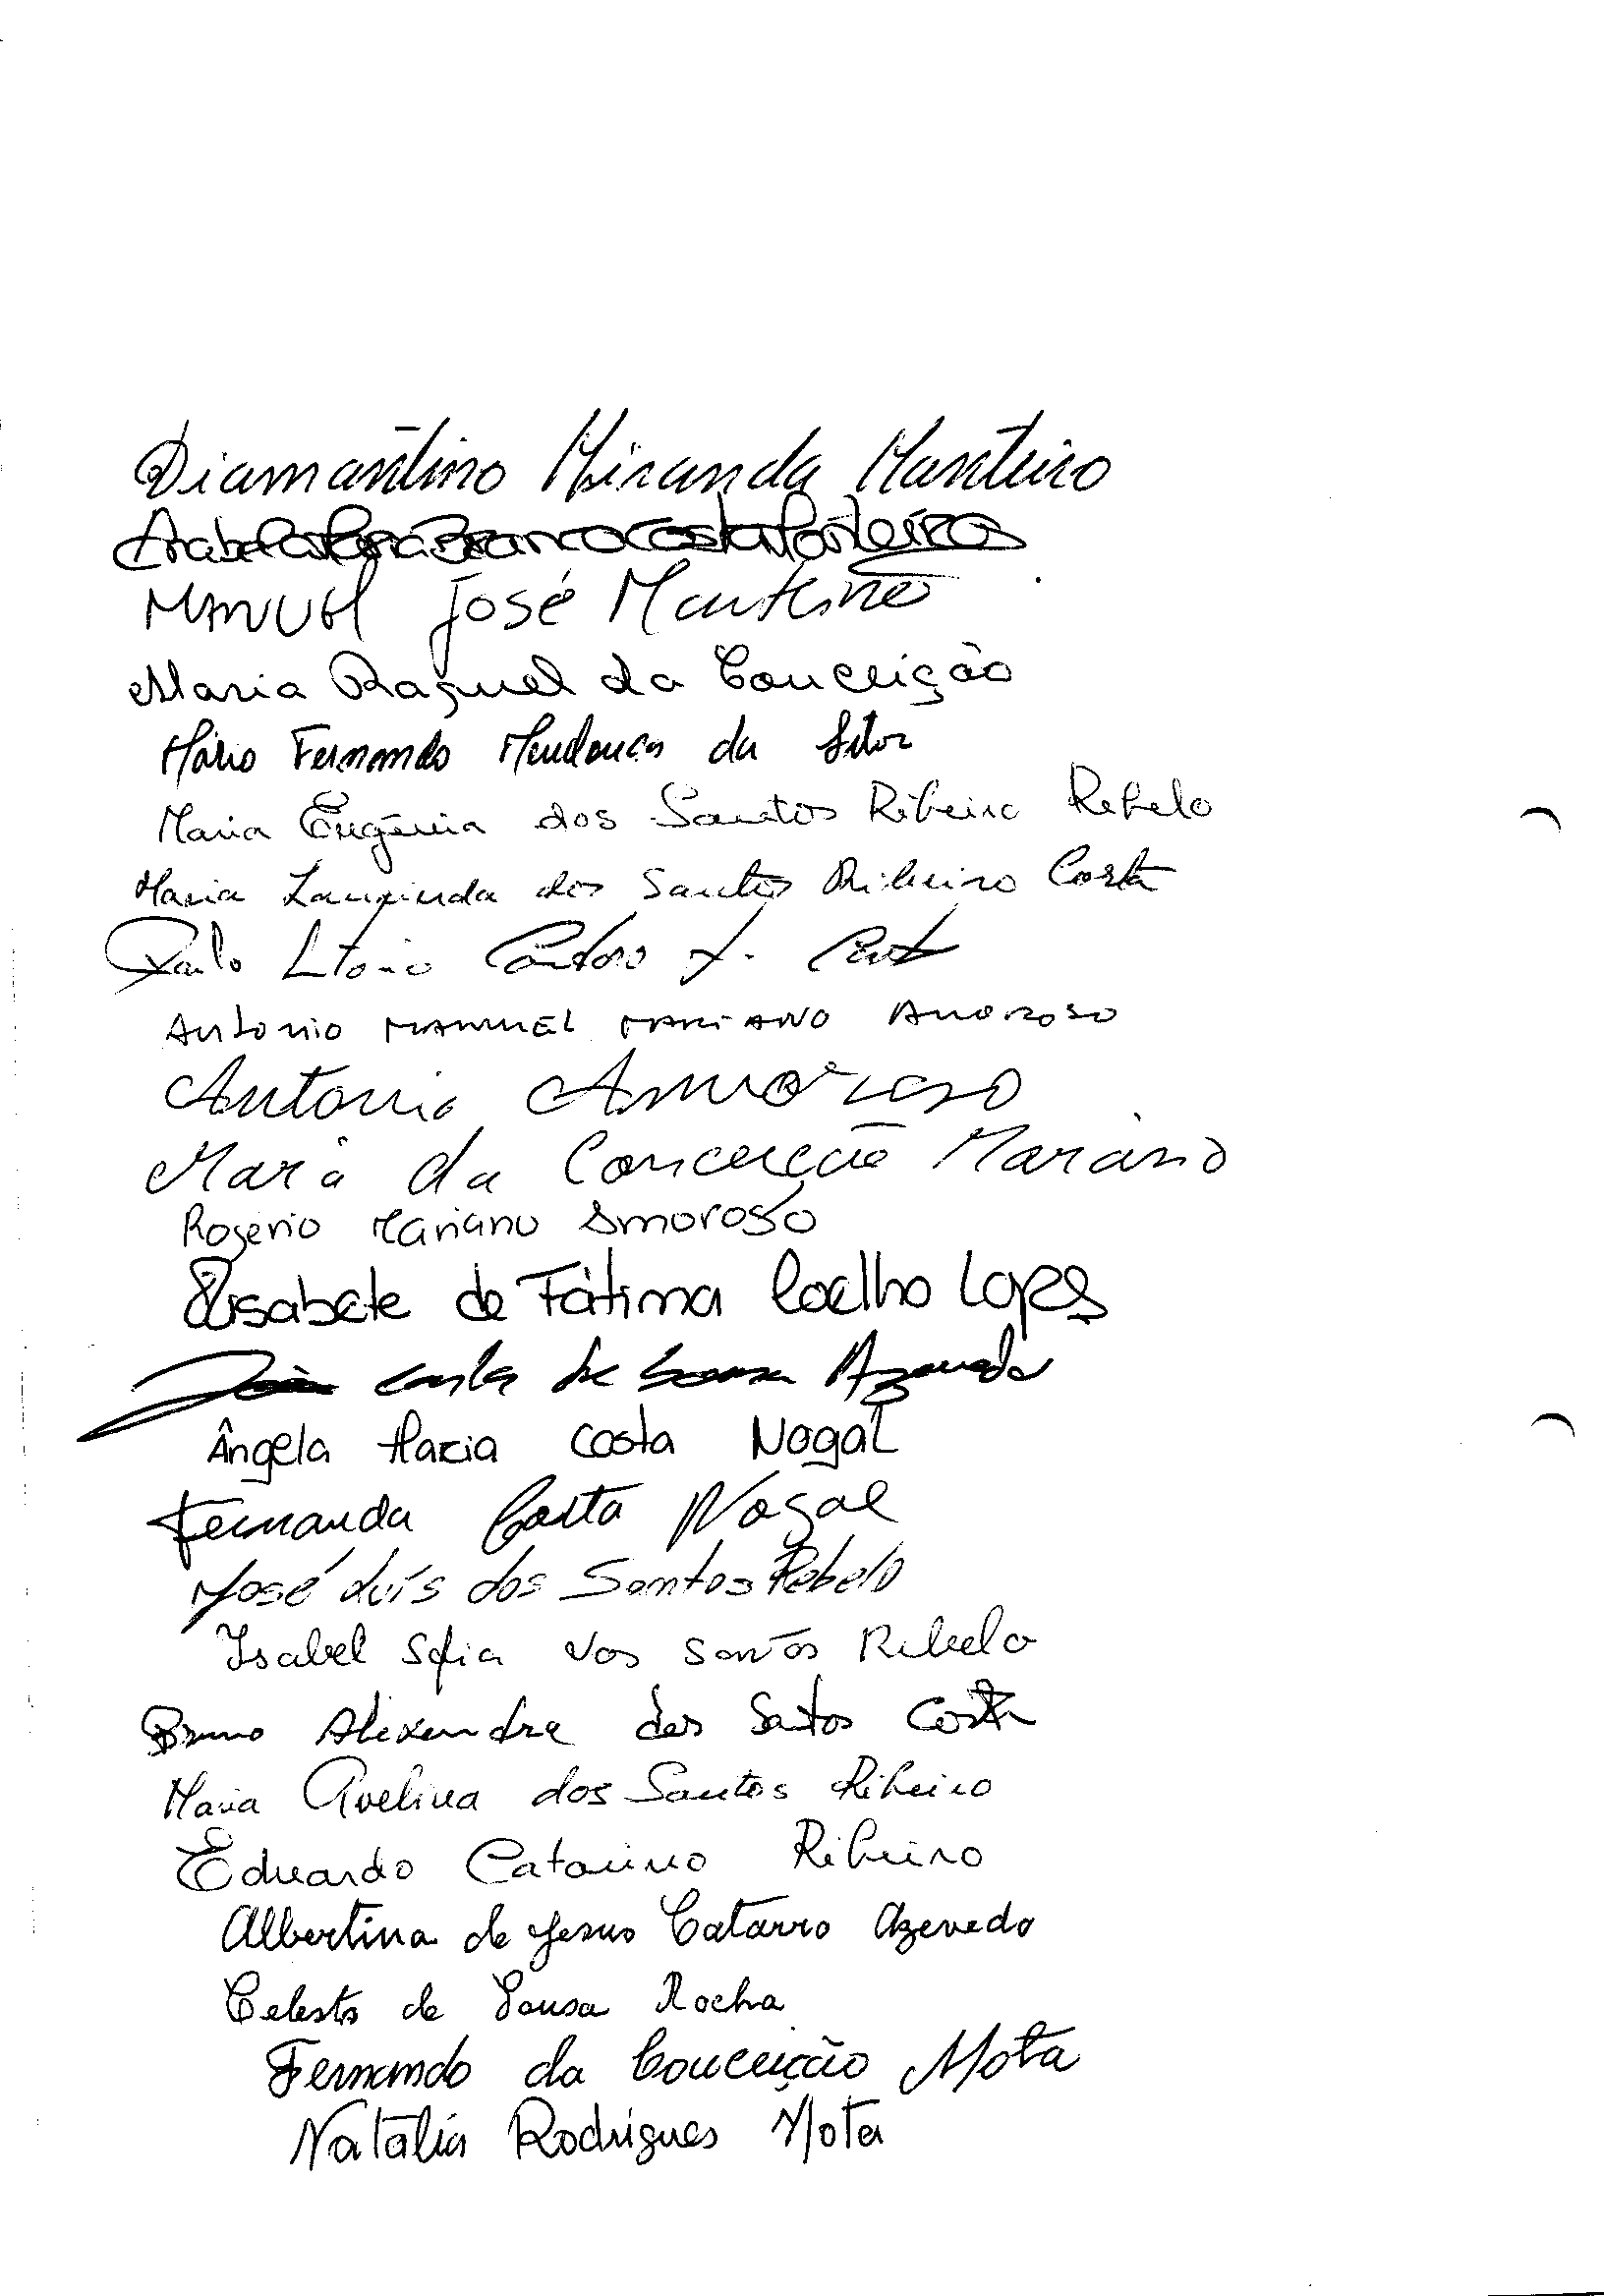 Diamantino Miranda Manteiro
Manuel José Manteiro
Maria Raquel da Conceição
Mário Fernando Mendonça da Silva
Maria Eugénia dos Santos Ribeiro Rebelo
Maria Laurinda dos Santos Ribeiro Costa
Paulo
António MANUEL MARIANO Amoroso
Antonio Amoroso
Maria da Conceição Mariano
Rogério Mariano Amoroso
Elisabete de Fátima Coelho Lopes
Carlos de Sousa Azevedo
Ângela Maria Costa Nogal
Fernanda Costa Nogal
José Luís dos Santos Rebelo
Isabel Sofia dos Santos Rebelo
Bruno Alexandre dos Santos Costa
Maria Avelina dos Santos Ribeiro
Eduardo Catarino Ribeiro
Albertina de Jesus Catarro Azevedo
Celeste de Sousa Rocha
Fernando da Conceição Mota
Natália Rodrigues Mota